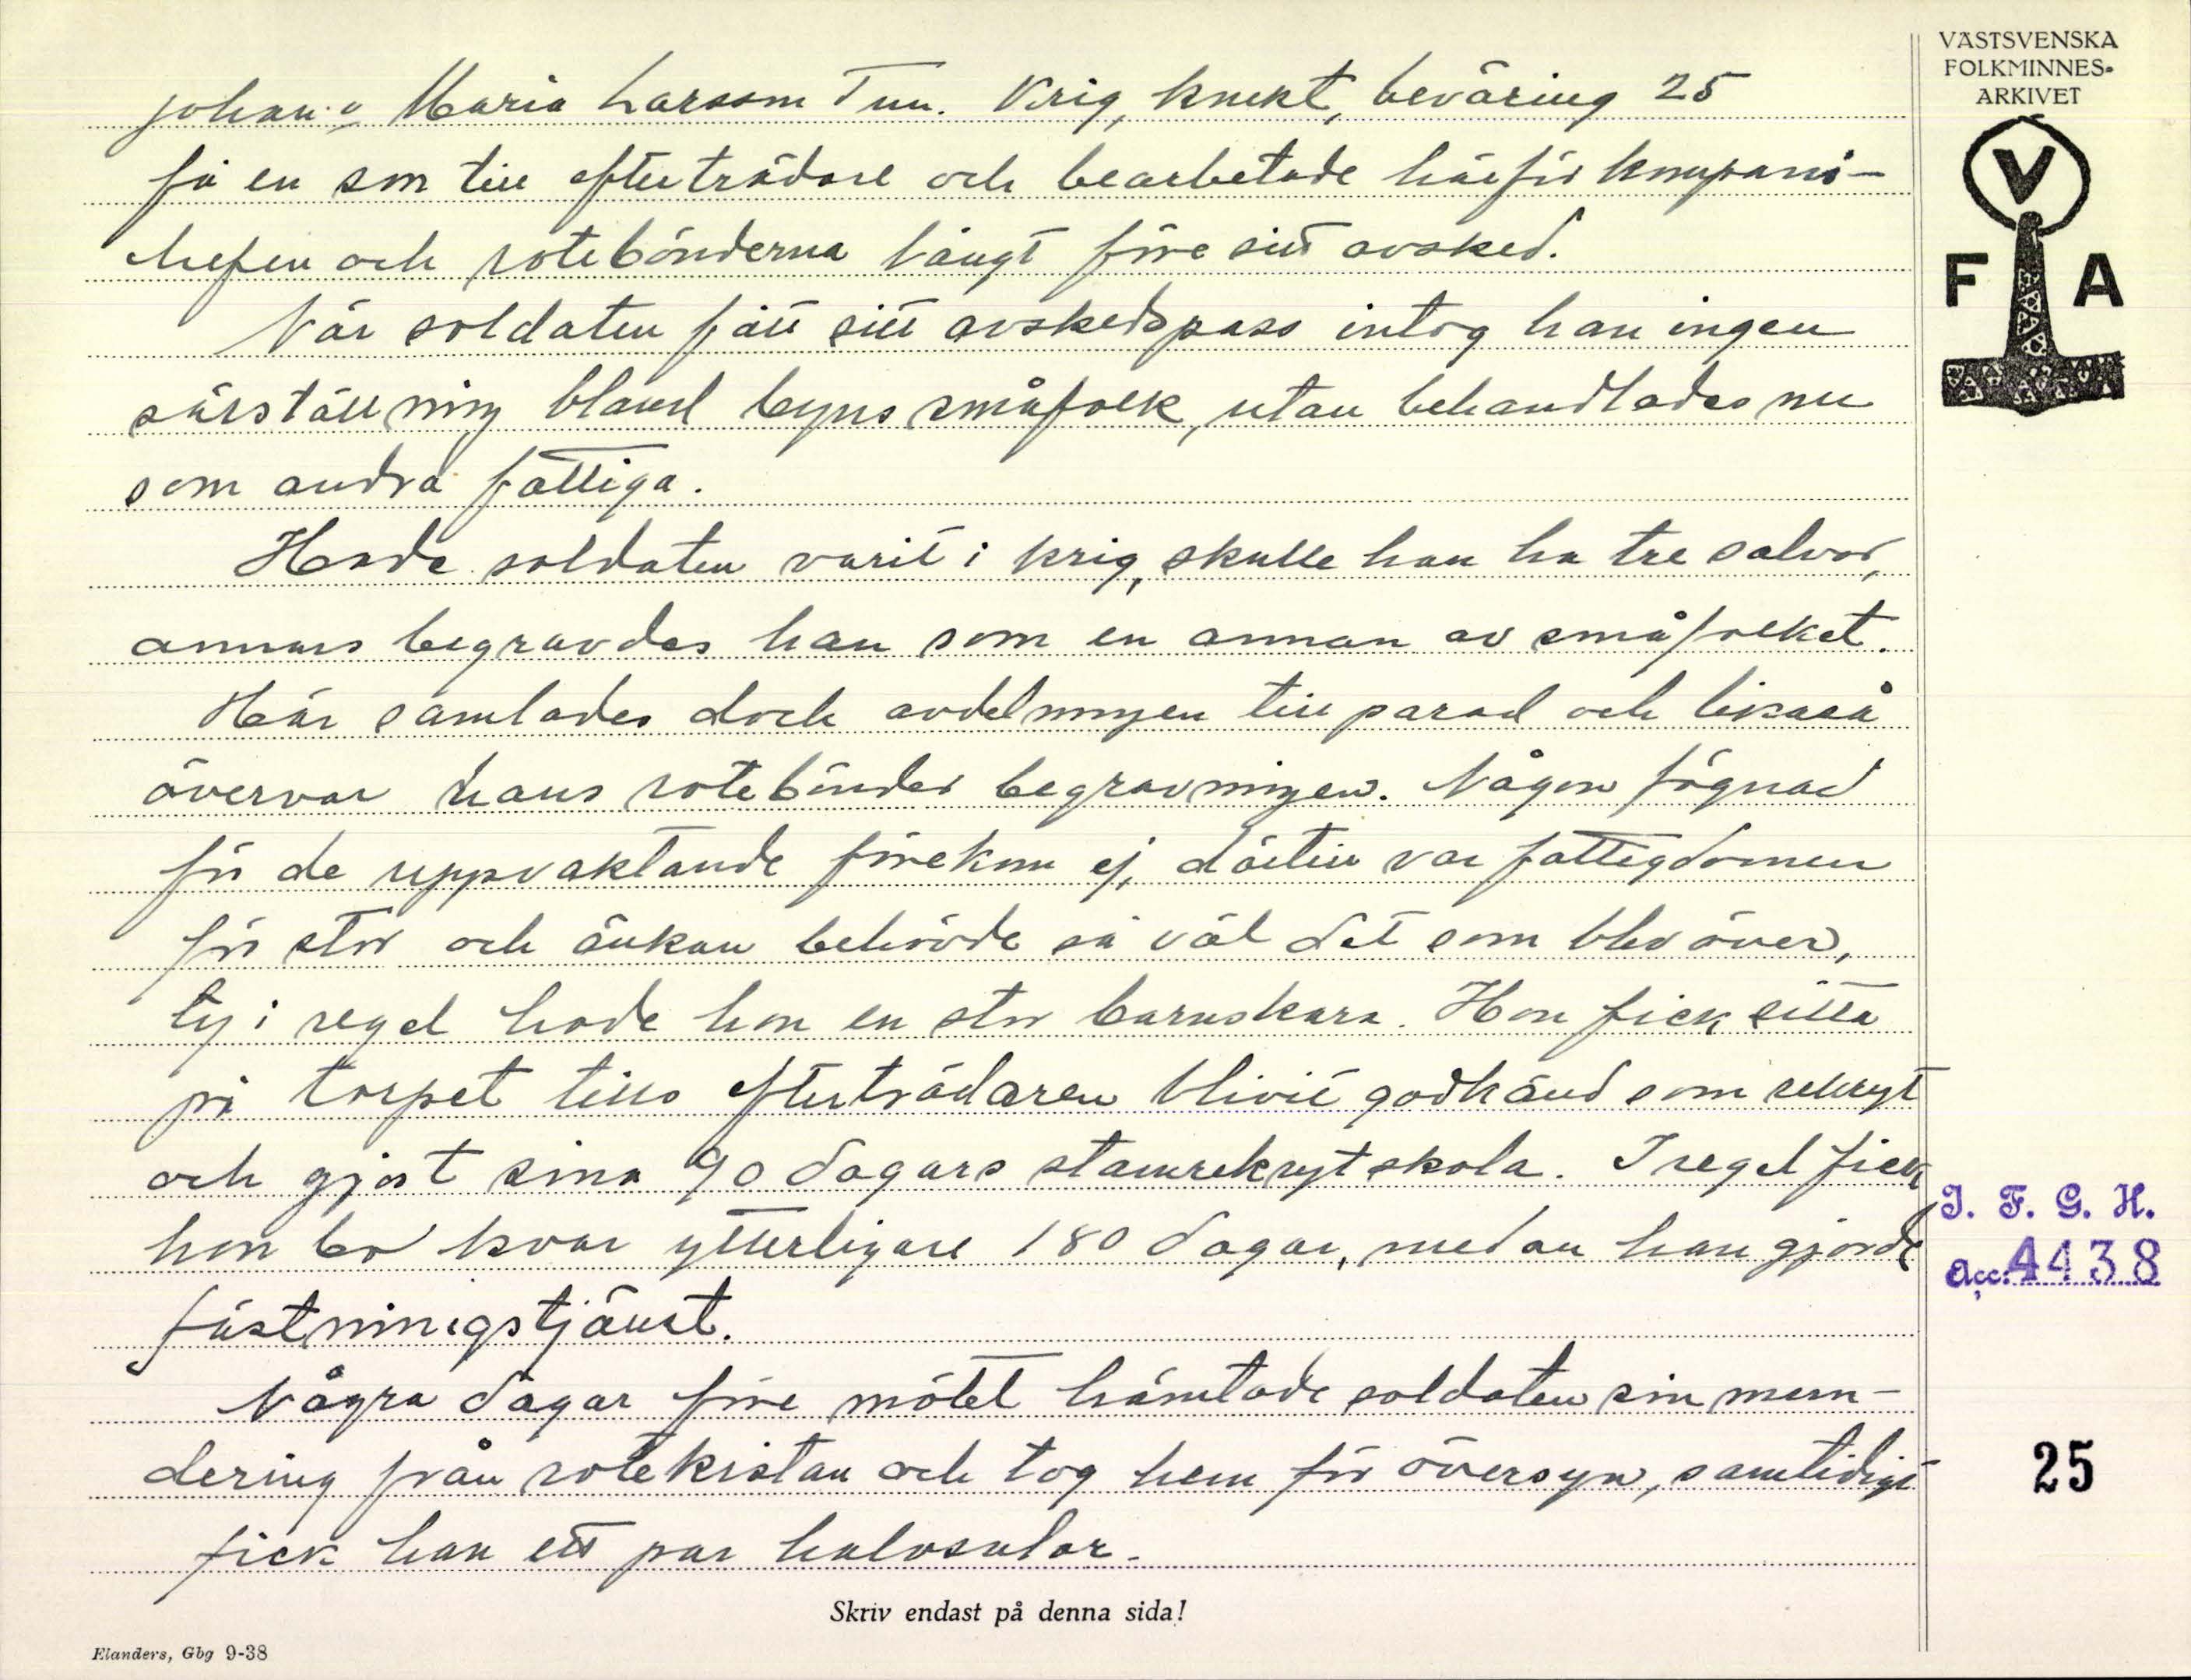 VÄSTSVENSKA
FOLKMINNES-
ARKIVET
V
F A
Johan o Maria Larsson Tun. Krig, knekt, beväring 25
få en son till efterträdare och bearbetade härför kompani-
chefen och rotebönderna långt före sitt avsked.
När soldaten fått sitt avskedspass intog han ingen
särställning bland byns småfolk, utan behandlades nu
som andra fattiga.
Hade soldaten varit i krig, skulle han ha tre salvor,
annars begravdes han som en annan av småfolket.
Här samlades dock avdelningen till parad och likaså
övervar hans rotebönder begravningen. Någon fögnad
för de uppvaktande förekom ej, därtill var fattigdomen
för stor och änkan behövde så väl det som blev över,
ty i regel hade hon en stor barnskara. Hon fick sitta
på torpet tills efterträdaren blivit godkänd som rekryt
och gjort sina 90 dagars stamrekrytskola. I regel fick
hon bo kvar ytterligare 180 dagar, medan han gjorde
fästningstjänst.
Några dagar före mötet hämtade soldaten sin mun-
dering från rotekistan och tog hem för översyn, samtidigt
fick han ett par halvsulor.
I. F. G. H.
Acc. 4438
25
Skriv endast på denna sida!
Elanders, Gbg 9-38